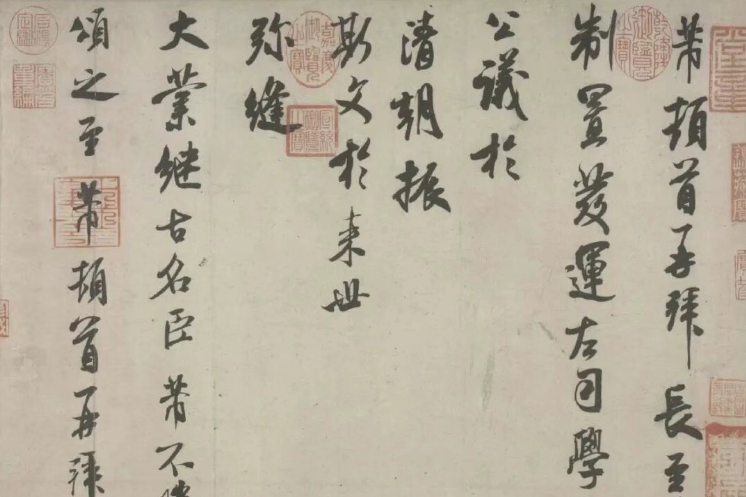 芾頓首再拜長至
制置發運左司學
公議於
清朝振
斯文於來世
彌縫
大業繼古名臣芾不勝
頌之至芾頓首再拜